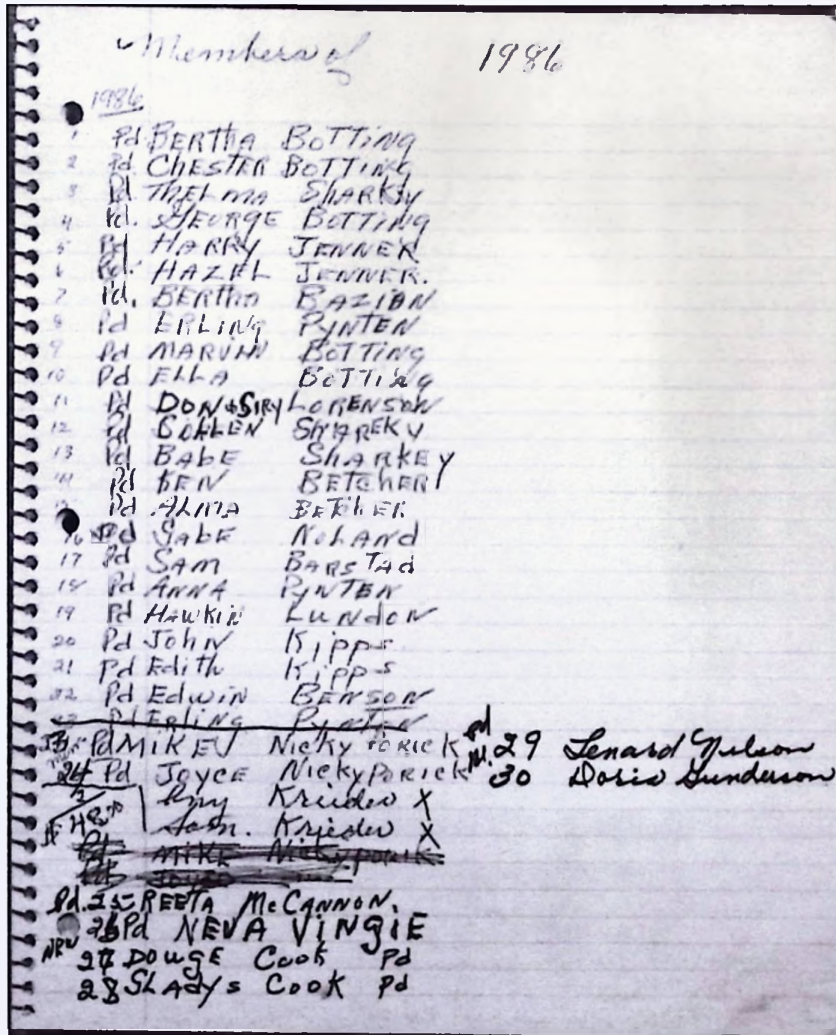 Members of 1986
1986
1 Pd BERTHA BOTTING
2 Pd. CHESTER BOTTING
3 Pd. THELMA SHARKSY
4 Pd. GEORGE BOTTING
5 Pd HARRY JENNER
6 Pd. HAZEL JENNER.
7 Pd. BERTHA BAZIAN
8 Pd ERLING PYNTEN
9 Pd MARVIN BOTTING
10 Pd ELLA BOTTING
11 Pd DON & SIRY LORENSON
12 Pd SHAREKY
13 Pd BABE SHARKEY
14 Pd BEN BETCHER
15 Pd ALMA BETCHER
16 Pd GABE NOLAND
17 Pd SAM BARSTAD
18 Pd ANNA PYNTEN
19 Pd HAWKIN LUNDON
20 Pd JOHN Kipps
21 Pd Edith Kipps
22 Pd Edwin BENSON
23 ERLING PYNTEN
Pd MIKE NickyPORICK Pd 29 Lenard Nelson
24 Pd JOYCE NickyPORICK Pd. 30 Doris Gunderson
Krieder X
Sam. Krieder X
Pd MIKE NickyPORIK
Pd. 25 REETA McCANNON.
26 Pd NEVA VINGIE
NEW 27 DOUGE COOK Pd
28 GLADYS COOK Pd